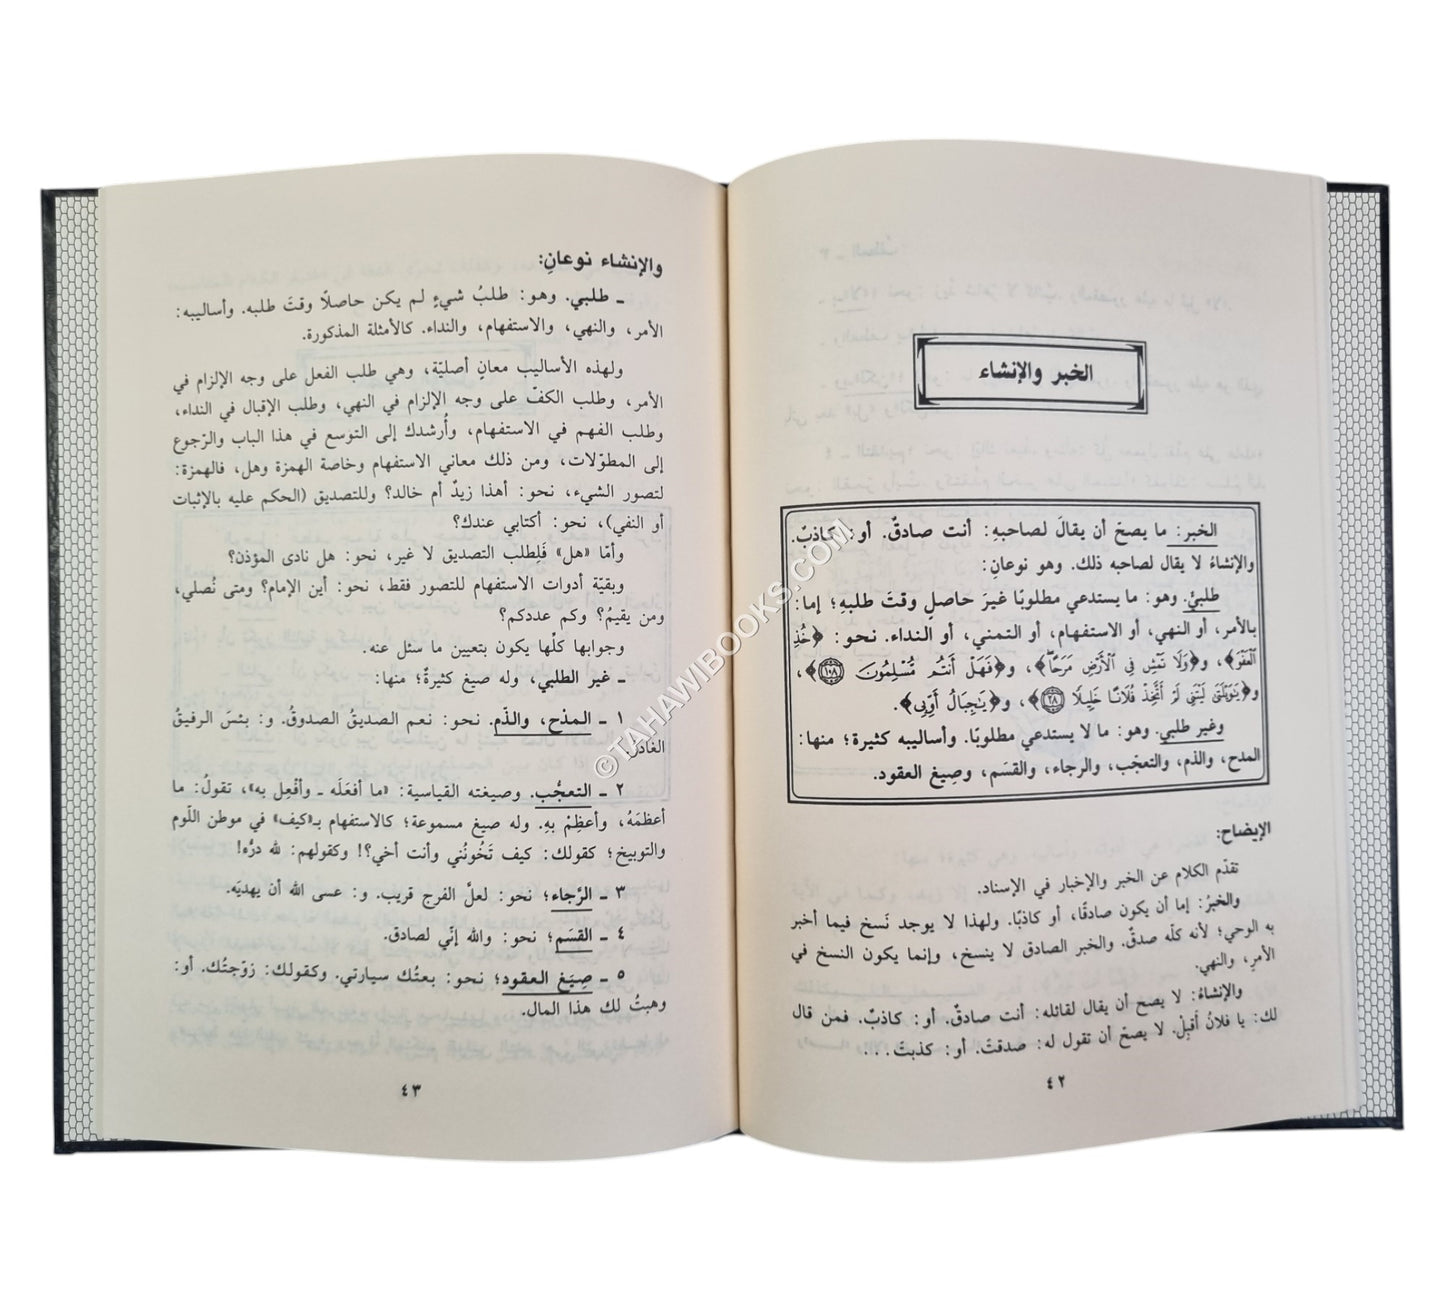 الخبر والإنشاء
الخبر: ما يصحّ أن يقالَ لصاحبهِ: أنت صادقٌ. أو: كاذبٌ.
والإنشاءُ لا يقال لصاحبه ذلك. وهو نوعانِ:
طلبيٌّ. وهو: ما يستدعي مطلوبًا غيرَ حاصلٍ وقتَ طلبهِ؛ إما:
بالأمر، أو النهي، أو الاستفهام، أو التمني، أو النداء. نحو: ﴿خُذِ
ٱلْعَفْوَ﴾، و﴿وَلَا تَمْشِ فِى ٱلْأَرْضِ مَرَحًا﴾، و﴿فَهَلْ أَنتُم مُّسْلِمُونَ ١٠٨﴾،
و﴿يَٰوَيْلَتَىٰ لَيْتَنِى لَمْ أَتَّخِذْ فُلَانًا خَلِيلًا ٢٨﴾، و﴿يَٰجِبَالُ أَوِّبِى﴾.
وغير طلبي. وهو: ما لا يستدعي مطلوبًا. وأساليبه كثيرة؛ منها:
المدح، والذم، والتعجّب، والرجاء، والقسَم، وصِيغ العقود.
الإيضاح:
تقدّم الكلام عن الخبر والإخبار في الإسناد.
والخبرُ: إما أن يكون صادقًا، أو كاذبًا. ولهذا لا يوجد نَسخ فيما أخبر
به الوحي؛ لأنه كلّه صدقٌ. والخبر الصادق لا ينسخ، وإنما يكون النسخ في
الأمرِ، والنهي.
والإنشاءُ: لا يصح أن يقال لقائله: أنت صادقٌ. أو: كاذبٌ. فمن قال
لك: يا فلانُ أَقبِلْ. لا يصحّ أن تقول له: صدقتَ. أو: كذبتَ...
٤٢
والإنشاء نوعانِ:
ـ طلبي. وهو: طلبُ شيءٍ لم يكن حاصلًا وقتَ طلبه. وأساليبه:
الأمر، والنهي، والاستفهام، والنداء. كالأمثلة المذكورة.
ولهذه الأساليب معانٍ أصليّة، وهي طلب الفعل على وجه الإلزام في
الأمر، وطلب الكفّ على وجه الإلزام في النهي، وطلب الإقبال في النداء،
وطلب الفهم في الاستفهام، وأُرشدك إلى التوسع في هذا الباب والرّجوع
إلى المطوّلات، ومن ذلك معاني الاستفهام وخاصة الهمزة وهل، فالهمزة:
لتصور الشيء، نحو: أهذا زيدٌ أم خالد؟ وللتصديق (الحكم عليه بالإثبات
أو النفي)، نحو: أكتابي عندك؟
وأمّا «هل» فَلِطلب التصديق لا غير، نحو: هل نادى المؤذن؟
وبقيّة أدوات الاستفهام للتصور فقط، نحو: أين الإمام؟ ومتى نُصلي،
ومن يقيمُ؟ وكم عددكم؟
وجوابها كلّها يكون بتعيين ما سئل عنه.
ـ غير الطلبي، وله صيغ كثيرةٌ؛ منها:
١ ـ المدْح، والذّم. نحو: نعم الصديقُ الصدوقُ. و: بئسَ الرفيقُ
الغادرُ
٢ ـ التعجُّب. وصيغته القياسية: «ما أفعَلَه ـ وأفْعِل به»، تقولُ: ما
أعظمَهُ، وأعظِمْ بهِ. وله صيغ مسموعة؛ كالاستفهام بـ«كيف» في موطن اللّوم
والتوبيخ؛ كقولك: كيف تَخُونُني وأنت أخي؟! وكقولهم: لله درُّه!
٣ ـ الرَّجاء؛ نحو: لعلّ الفرج قريب. و: عسى الله أن يهديَه.
٤ ـ القسَم؛ نحو: والله إنّي لصادق.
٥ ـ صِيَغ العقود؛ نحو: بعتُك سيارتي. وكقولك: زوّجتُك. أو:
وهبتُ لك هذا المال.
٤٣
©TAHAWIBOOKS.COM